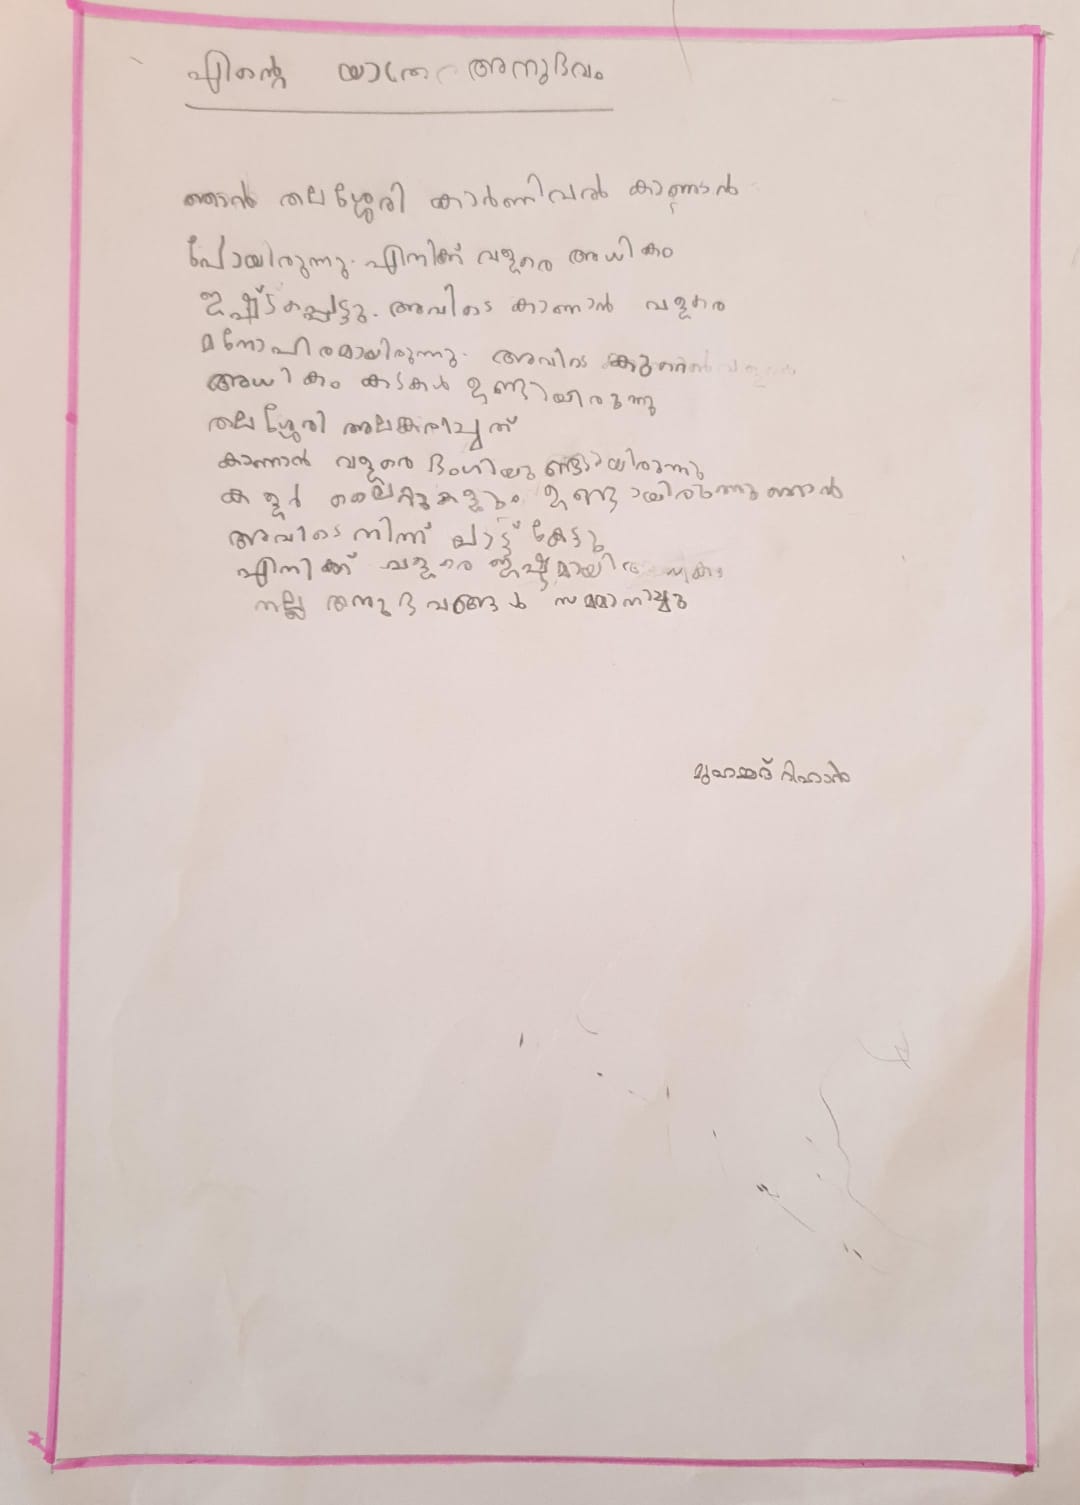 എന്റെ യാത്ര അനുഭവം
ഞാൻ തലശ്ശേരി കാർണിവൽ കാണാൻ
പോയിരുന്നു. എനിക്ക് വളരെ അധികം
ഇഷ്ട്ടപ്പെട്ടു. അവിടെ കാണാൻ വളരെ
മനോഹിരമായിരുന്നു. അവിടെ
അധികം കടകൾ ഉണ്ടായിരുന്നു
തലശ്ശേരി അലങ്കരിച്ചത്
കാണാൻ വളരെ ഭംഗിയുണ്ടായിരുന്നു
കളർ ലൈറ്റുകളും ഉണ്ടായിരുന്നു ഞാൻ
അവിടെ നിന്ന് പാട്ട് കേട്ടു
എനിക്ക് വളരെ ഇഷ്ടമായി
നല്ല അനുഭവങ്ങൾ സമ്മാനിച്ചു
മുഹമ്മദ് റിഹാൻ